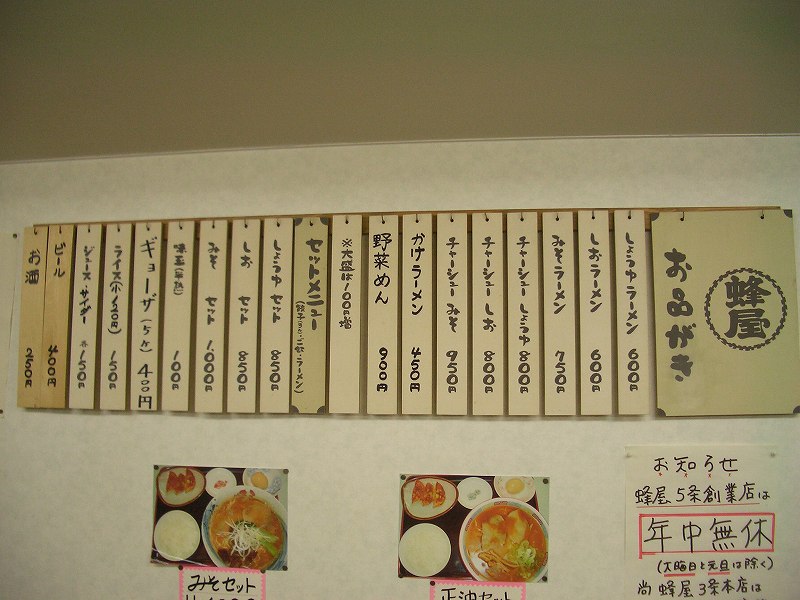 蜂屋
お品がき
しょうゆラーメン 600円
しおラーメン 600円
みそラーメン 750円
チャーシュー しょうゆ 800円
チャーシュー しお 800円
チャーシュー みそ 950円
かけラーメン 450円
野菜めん 900円
※大盛は100円増
セットメニュー
しょうゆ セット 850円
しお セット 850円
みそ セット 1,000円
味玉(半熟) 100円
ギョーザ(5ヶ) 400円
ライス(小100円) 150円
ジュース・サイダー 各150円
ビール 400円
お酒 250円
みそセット
正油セット
お知らせ
蜂屋 5条創業店は
年中無休
(大晦日と元旦は除く)
尚 蜂屋 3条本店は